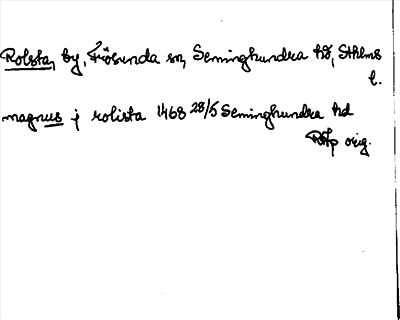 Rolsta, by, Frösunda sn, Seminghundra hd, Sthlms
l.
magnus j rolista 1468 28/5 Seminghundra hd
RAp orig.